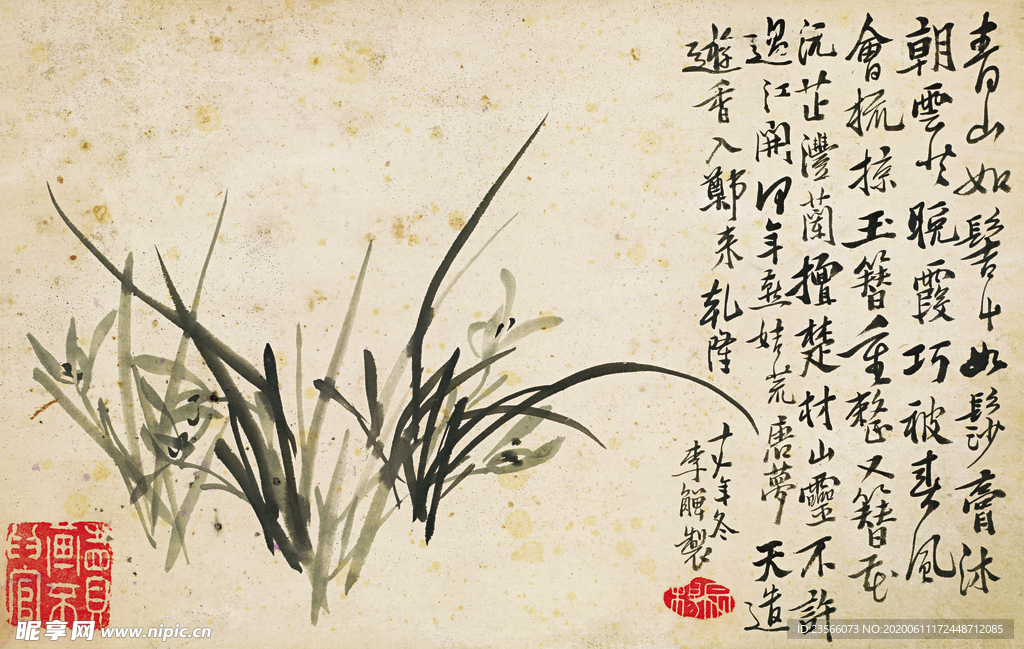 青山如髻斗如鬟膏沐
朝雲共晚霞巧被春風
會梳掠玉簪重整又簪花
沅芷灃蘭擅楚材山靈不許
過江開何年蒸結荒唐夢天造
遊香入鄭來乾隆
十八年冬
李觶製
昵享网 www.nipic.cn
ID:23566073 NO:20200611172448712085